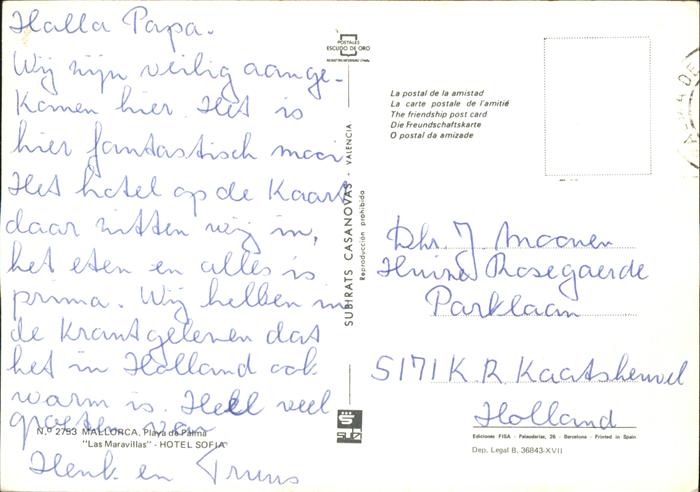 Halla Papa.
Wij zijn veilig aange-
komen hier. Het is
hier fantastisch mooi
Het hotel op de Kaart
daar zitten wij in,
het eten en alles is
prima. Wij hebben in
de Krant gelezen dat
het in Holland ook
warm is. Heel veel
groeten van
Henk en Truus
N.º 2753 MALLORCA, Playa de Palma
"Las Maravillas" - HOTEL SOFIA
POSTALES
ESCUDO DE ORO
SUBIRATS CASANOVAS - VALENCIA
Reproducción prohibida
La postal de la amistad
La carte postale de l'amitié
The friendship post card
Die Freundschaftskarte
O postal da amizade
Dhr. J. Moonen
Huize Rosegaerde
Parklaan
5171 K R Kaatsheuvel
Holland
Ediciones FISA - Palaudarias, 26 - Barcelona - Printed in Spain
Dep. Legal B. 36843-XVII